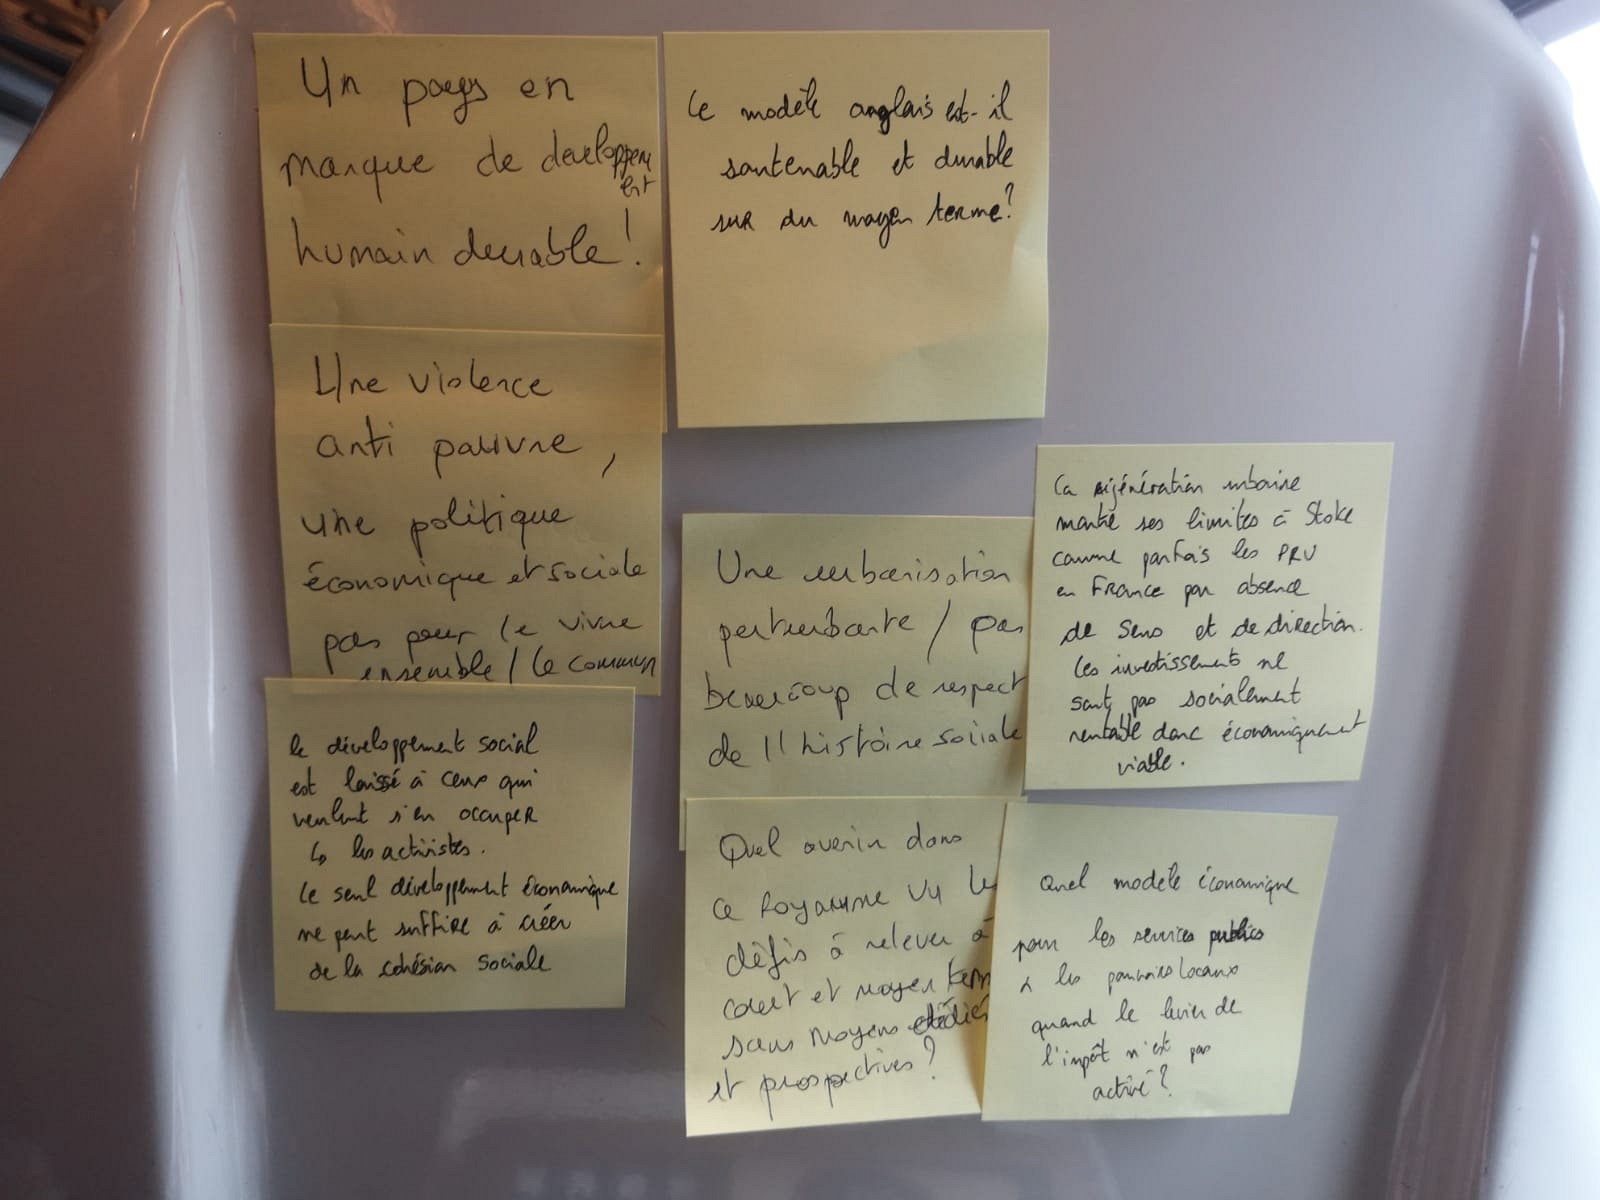 Un pays en
manque de developpem
ent
humain durable !
Le modèle anglais est-il
soutenable et durable
sur du moyen terme ?
Une violence
anti pauvre,
une politique
économique et sociale
pas pour le vivre
ensemble / le commun
le développement social
est laissé à ceux qui
veulent s'en occuper
↳ les activistes.
Le seul développement économique
ne peut suffire à créer
de la cohésion sociale
Une urbanisation
perturbante / pas
beaucoup de respect
de l'histoire sociale
La régénération urbaine
montre ses limites à Stoke
comme parfois les PRU
en France par absence
de sens et de direction.
Les investissements ne
sont pas socialement
rentable donc économiquement
viable.
Quel avenir dans
ce Royaume Uni les
défis à relever à
court et moyen term
sans moyens dédiés
et prospectives ?
Quel modèle économique
pour les services publics
& les pouvoirs locaux
quand le levier de
l'impôt n'est pas
activé ?